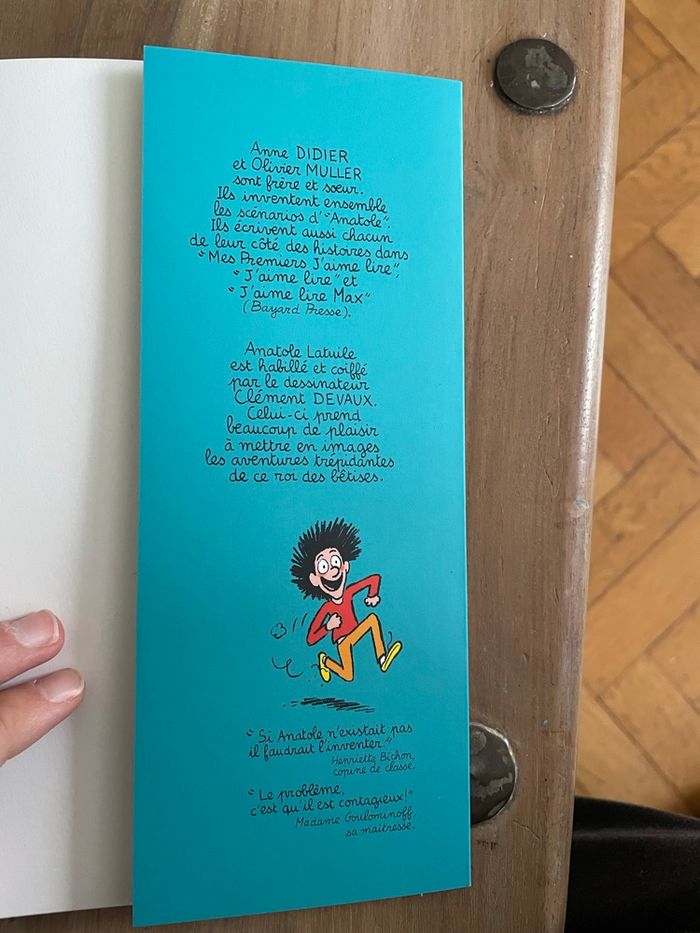 Anne DIDIER
et Olivier MULLER
sont frère et sœur.
Ils inventent ensemble
les scénarios d'"Anatole".
Ils écrivent aussi chacun
de leur côté des histoires dans
"Mes Premiers J'aime lire",
"J'aime lire" et
"J'aime lire Max"
(Bayard Presse).
Anatole Latuile
est habillé et coiffé
par le dessinateur
Clément DEVAUX.
Celui-ci prend
beaucoup de plaisir
à mettre en images
les aventures trépidantes
de ce roi des bêtises.
"Si Anatole n'existait pas
il faudrait l'inventer."
Henriette Bichon,
copine de classe.
"Le problème,
c'est qu'il est contagieux!"
Madame Goulominoff,
sa maîtresse.